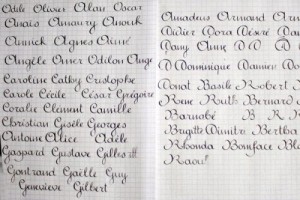 Odile Olivier Alair Oscar
Anaïs Amaury Anouk
Annick Agnès Aimé
Angèle Amer Odilon Ange
Caroline Cathy Cristophe
Carole Cécile César Grégoire
Coralie Clément Camille
Christian Gisèle Georges
Antoine Alice Adèle
Gaspard Gustave Gilles
Gontrand Gaëlle Guy
Geneviève Gilbert
Amadeus Armand
Didier Dora Désiré
Dany Anne D D
D Dominique Damien
Donat Basile Robert
René Ruth Bernard
Barnabé B R
Brigitte Dimitri Bertha
Rhonda Boniface
Raoul